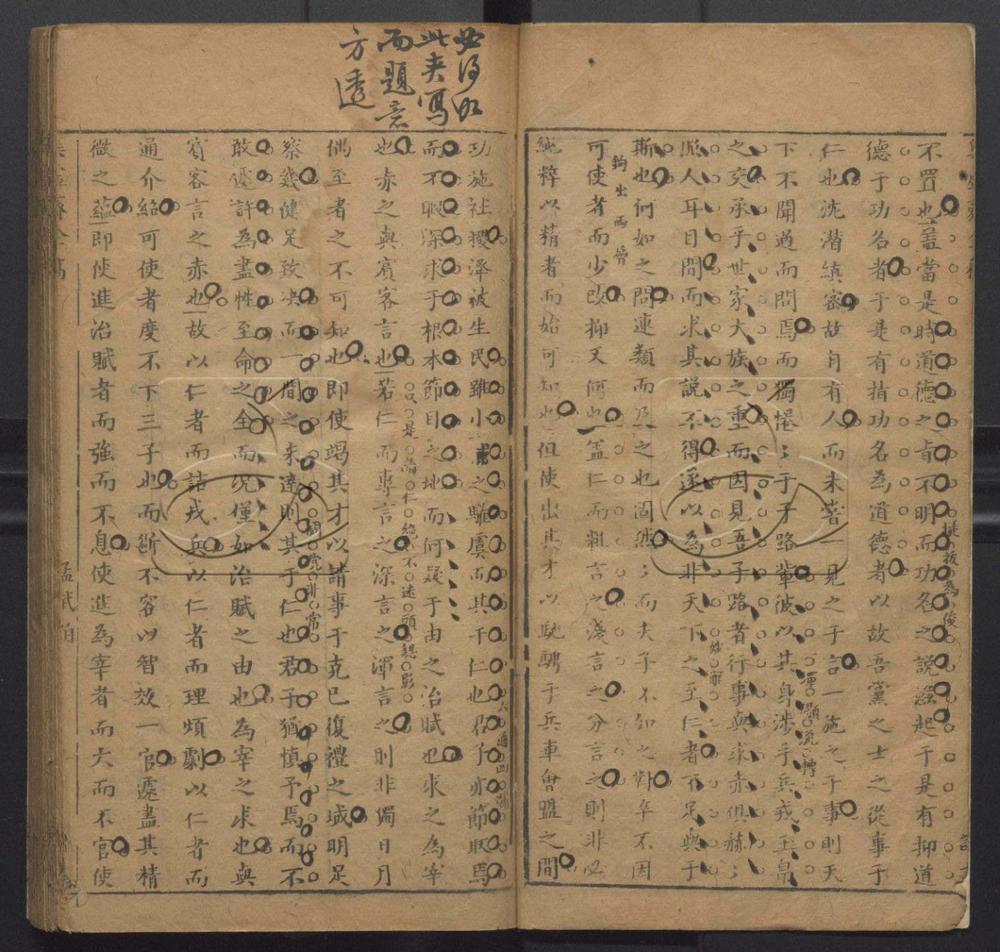 不置也蓋當是時道德之旨不明而功名之説盛起于是有抑道
德于功名者于是有指功名為道德者以故吾黨之士之從事于
仁也沈潛縝密故自有人而未嘗一見之于言一施之于事則天
下不聞過而問焉而獨惓〻于子路輩彼以其身涉乎兵戎玉帛
之交承乎世家大族之重而因見吾子路者行事與求赤俱赫〻
照人耳目間而求其説不得遂以為非天下之至仁者不足與于
斯也何如之問連類而及之也固然〻而夫子不知之對卒不因
可使者而少改抑又何也蓋仁而粗言之淺言之分言之則非必
純粹以精者而始可知也但使出其才以馳騁于兵車會盟之間
挺拔為俊
鉤出兩層
必得如
此夾寫
而題意
方透
功施社稷澤被生民雖小之騶虞而其于仁也君子亦節取焉
而不暇深求于根本節目之地而何疑于由之治賦也求之為宰
也赤之與賓客言也若仁而專言之深言之渾言之則非獨日月
偶至者之不可知也即使竭其才以請事于克己復禮之域明足
察幾健足致決而一間之未達則其于仁也君子猶慎予焉而不
敢遽許為盡性至命之全而況僅如治賦之由也為宰之求也與
賓客言之赤也故以仁者而詰戎兵以仁者而理煩劇以仁者而
通介紹可使者度不下三子也而斷不容以智效一官遽盡其精
微之蘊即使進治賦者而強而不息使進為宰者而大而不官使
孟武伯